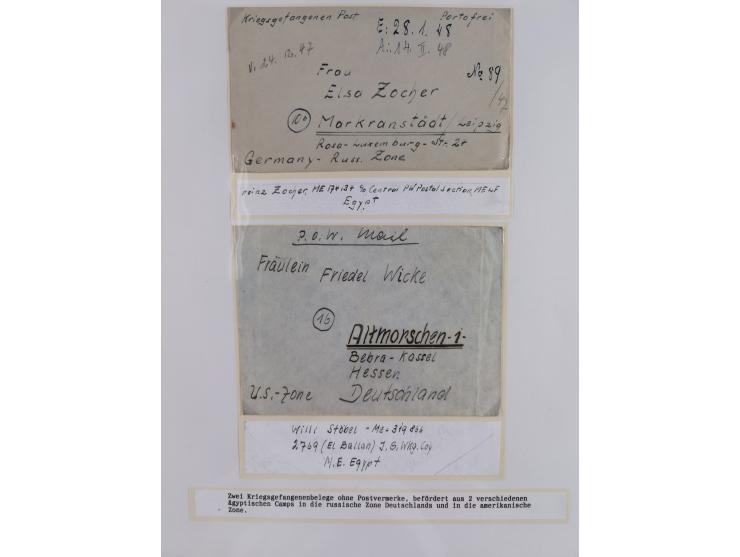 Kriegsgefangenen Post Portofrei
E: 28. 1. 48
A: 14. II. 48
v. 24. 12. 47
No 89
/47
Frau
Elsa Zocher
10b Markranstädt / Leipzig
Rosa-Luxemburg-Str. 27
Germany - Russ. Zone
Heinz Zocher, ME 174137 c/o Central PW Postal section, MELF
Egypt
P.O.W. Mail
Fräulein Friedel Wicke
16
Altmorschen -1-
Bebra - Kassel
Hessen
U.S.-Zone Deutschland
Willi Stöbel - ME- 319866
2769 (El Ballah) J. G. Wkg. Coy
M.E. Egypt
Zwei Kriegsgefangenenbelege ohne Postvermerke, befördert aus 2 verschiedenen
ägyptischen Camps in die russische Zone Deutschlands und in die amerikanische
Zone.